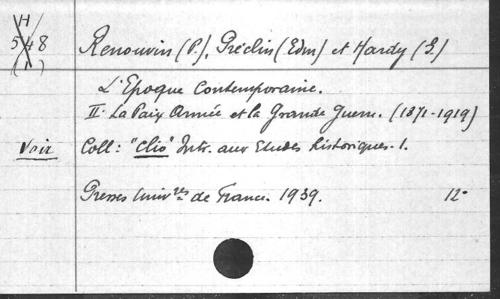 H
548
(1)
Renouvin (P.), Préclin (Edm) et Hardy (G.)
L'Epoque Contemporaine.
II. La Paix Armée et la Grande Guerre. (1871-1919)
Voir Coll: "Clio" Intr. aux Etudes historiques. 1.
Presses Univ.res de France. 1939. 12°